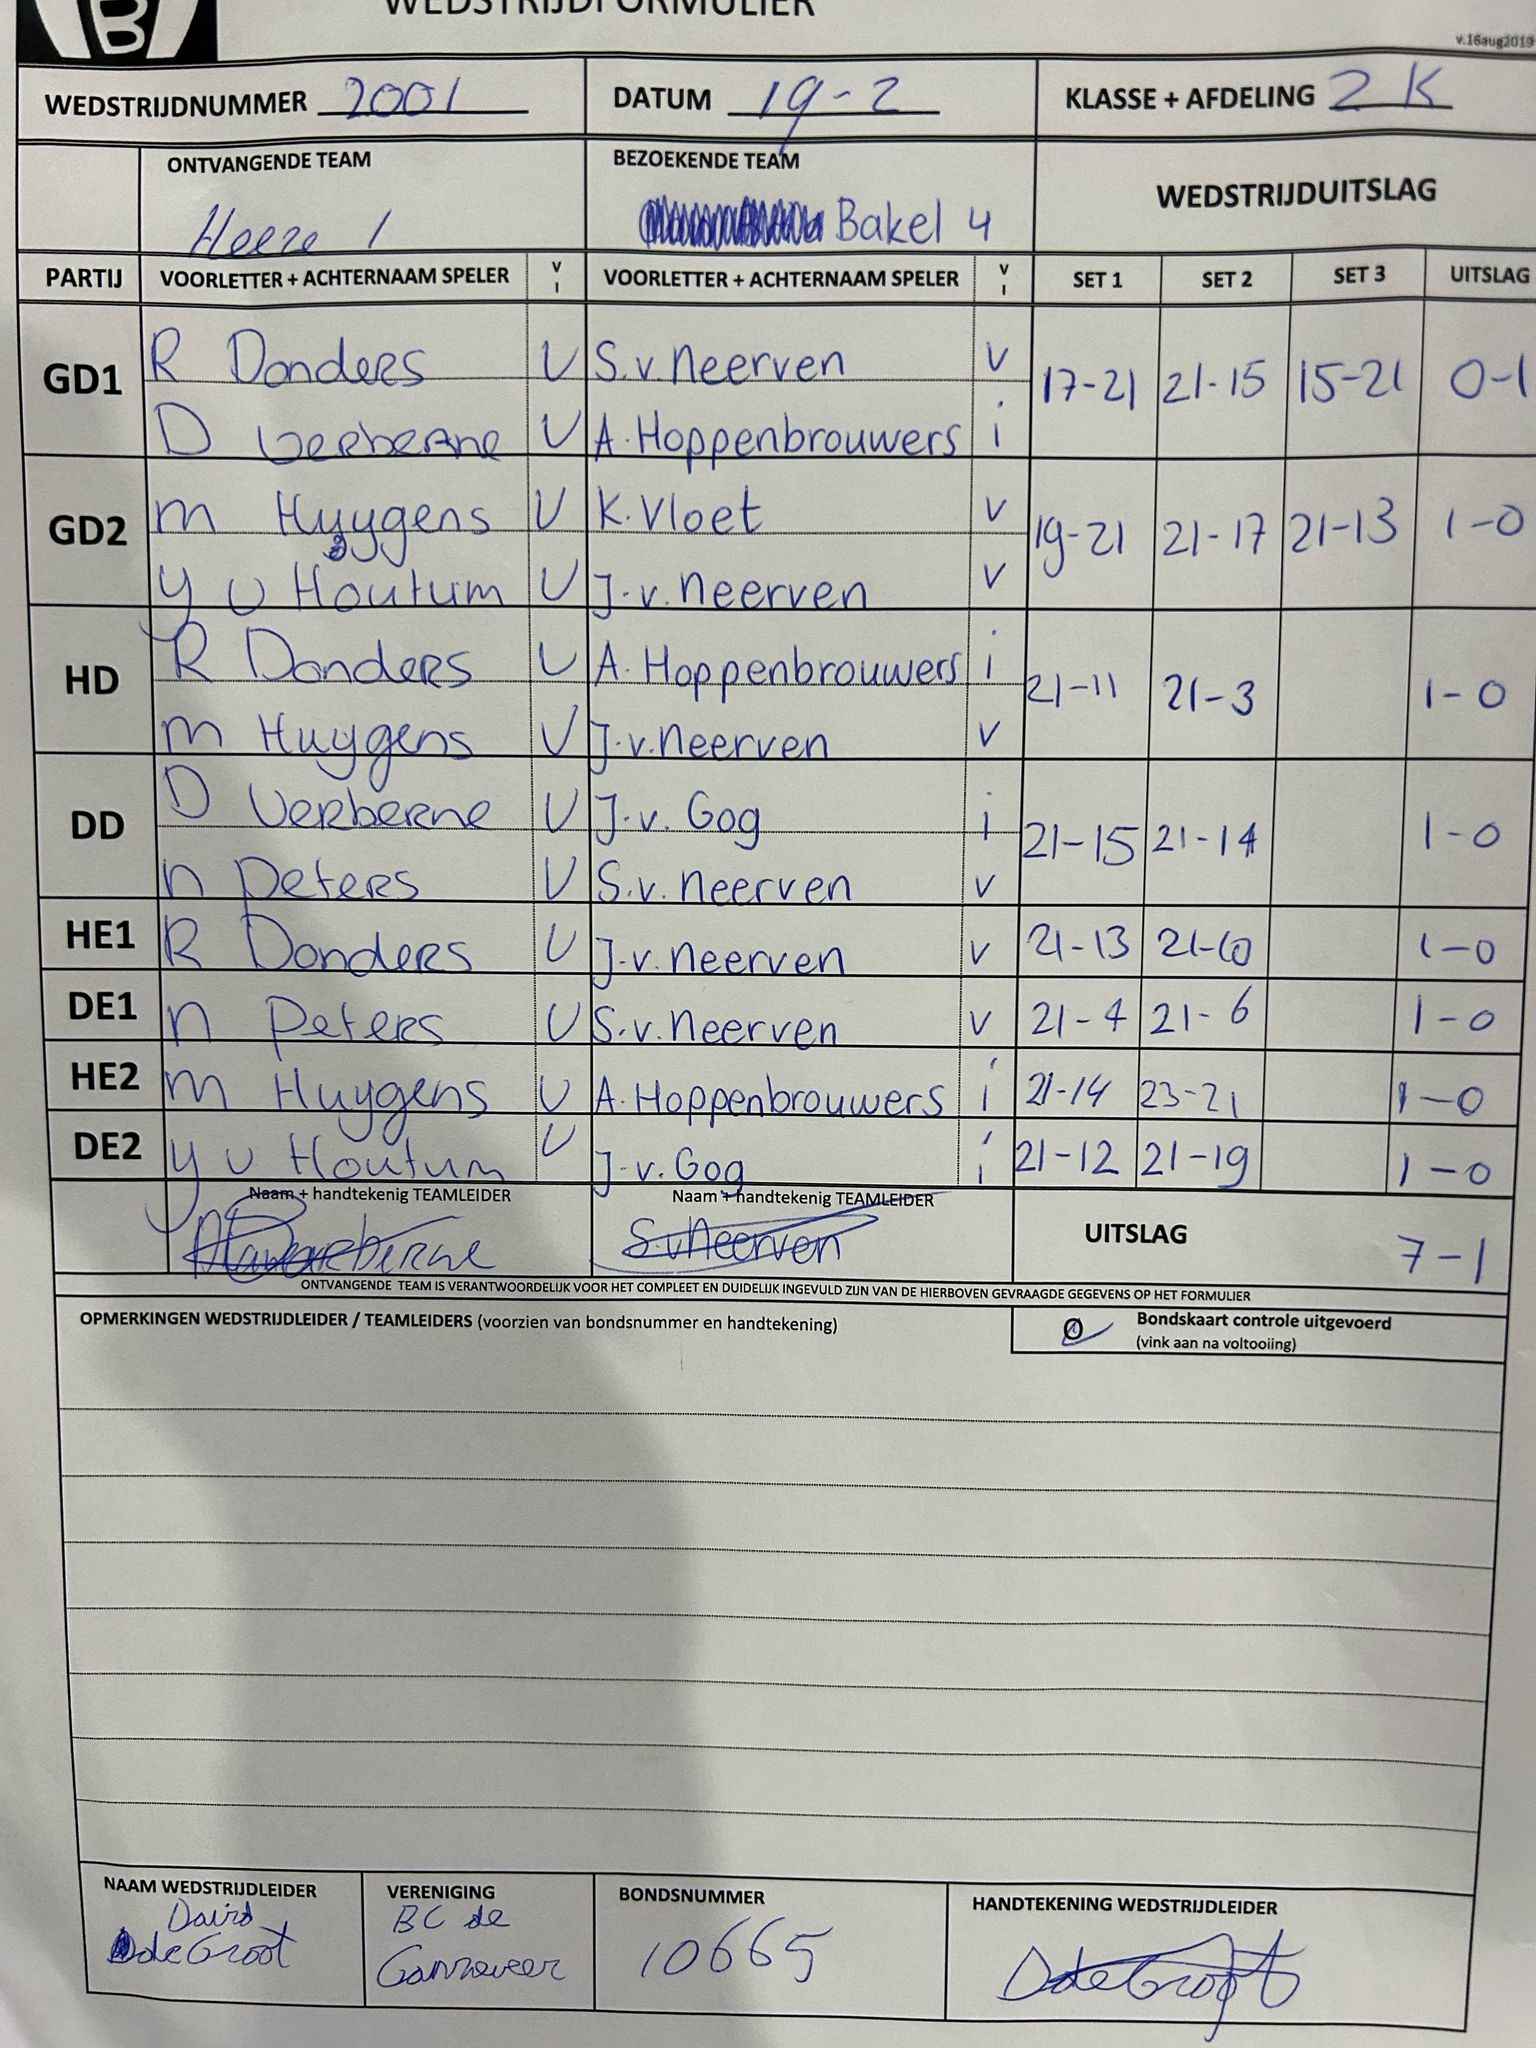 B
WEDSTRIJDFORMULIER
v.16aug2019
WEDSTRIJDNUMMER 2001 DATUM 19-2 KLASSE + AFDELING 2 K
ONTVANGENDE TEAM BEZOEKENDE TEAM WEDSTRIJDUITSLAG
Heeze 1 Bakel 4
PARTIJ VOORLETTER + ACHTERNAAM SPELER V I VOORLETTER + ACHTERNAAM SPELER V I SET 1 SET 2 SET 3 UITSLAG
GD1 R Donders V S.v.Neerven v 17-21 21-15 15-21 0-1
D Verberne V A.Hoppenbrouwers i
GD2 M Huygens V K.Vloet v 19-21 21-17 21-13 1-0
Y v Houtum V J.v.Neerven v
HD R Donders V A.Hoppenbrouwers i 21-11 21-3 1-0
M Huygens V J.v.Neerven v
DD D Verberne V J.v.Gog i 21-15 21-14 1-0
N Peters V S.v.Neerven v
HE1 R Donders V J.v.Neerven v 21-13 21-10 1-0
DE1 N Peters V S.v.Neerven v 21-4 21-6 1-0
HE2 M Huygens V A.Hoppenbrouwers i 21-14 23-21 1-0
DE2 Y v Houtum V J.v.Gog i 21-12 21-19 1-0
Naam + handtekenig TEAMLEIDER Naam + handtekenig TEAMLEIDER UITSLAG 7-1
S.vNeerven
ONTVANGENDE TEAM IS VERANTWOORDELIJK VOOR HET COMPLEET EN DUIDELIJK INGEVULD ZIJN VAN DE HIERBOVEN GEVRAAGDE GEGEVENS OP HET FORMULIER
OPMERKINGEN WEDSTRIJDLEIDER / TEAMLEIDERS (voorzien van bondsnummer en handtekening) Bondskaart controle uitgevoerd
(vink aan na voltooiing)
NAAM WEDSTRIJDLEIDER VERENIGING BONDSNUMMER HANDTEKENING WEDSTRIJDLEIDER
David BC de 10665 DdeGroot
de Groot